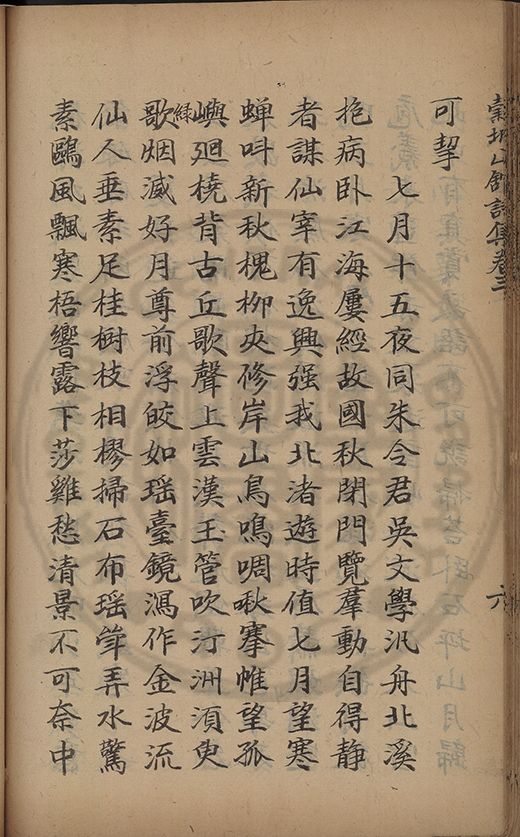 山館詩集卷三
六
可挈
七月十五夜同朱令君吳文學汎舟北溪
抱病卧江海屢經故國秋閉門覽羣動自得静
者謀仙宰有逸興强我北渚遊時值七月望寒
蝉呌新秋槐栁夾修岸山鳥鳴啁啾搴帷望孤
嶼廻橈背古丘歌聲上雲漢玉管吹汀洲湏臾
歌緑烟滅好月尊前浮皎如瑶臺鏡瀉作金波流
仙人垂素足桂樹枝相樛掃石布瑶筝弄水驚
素鷗風飄寒梧響露下莎雞愁清景不可奈中